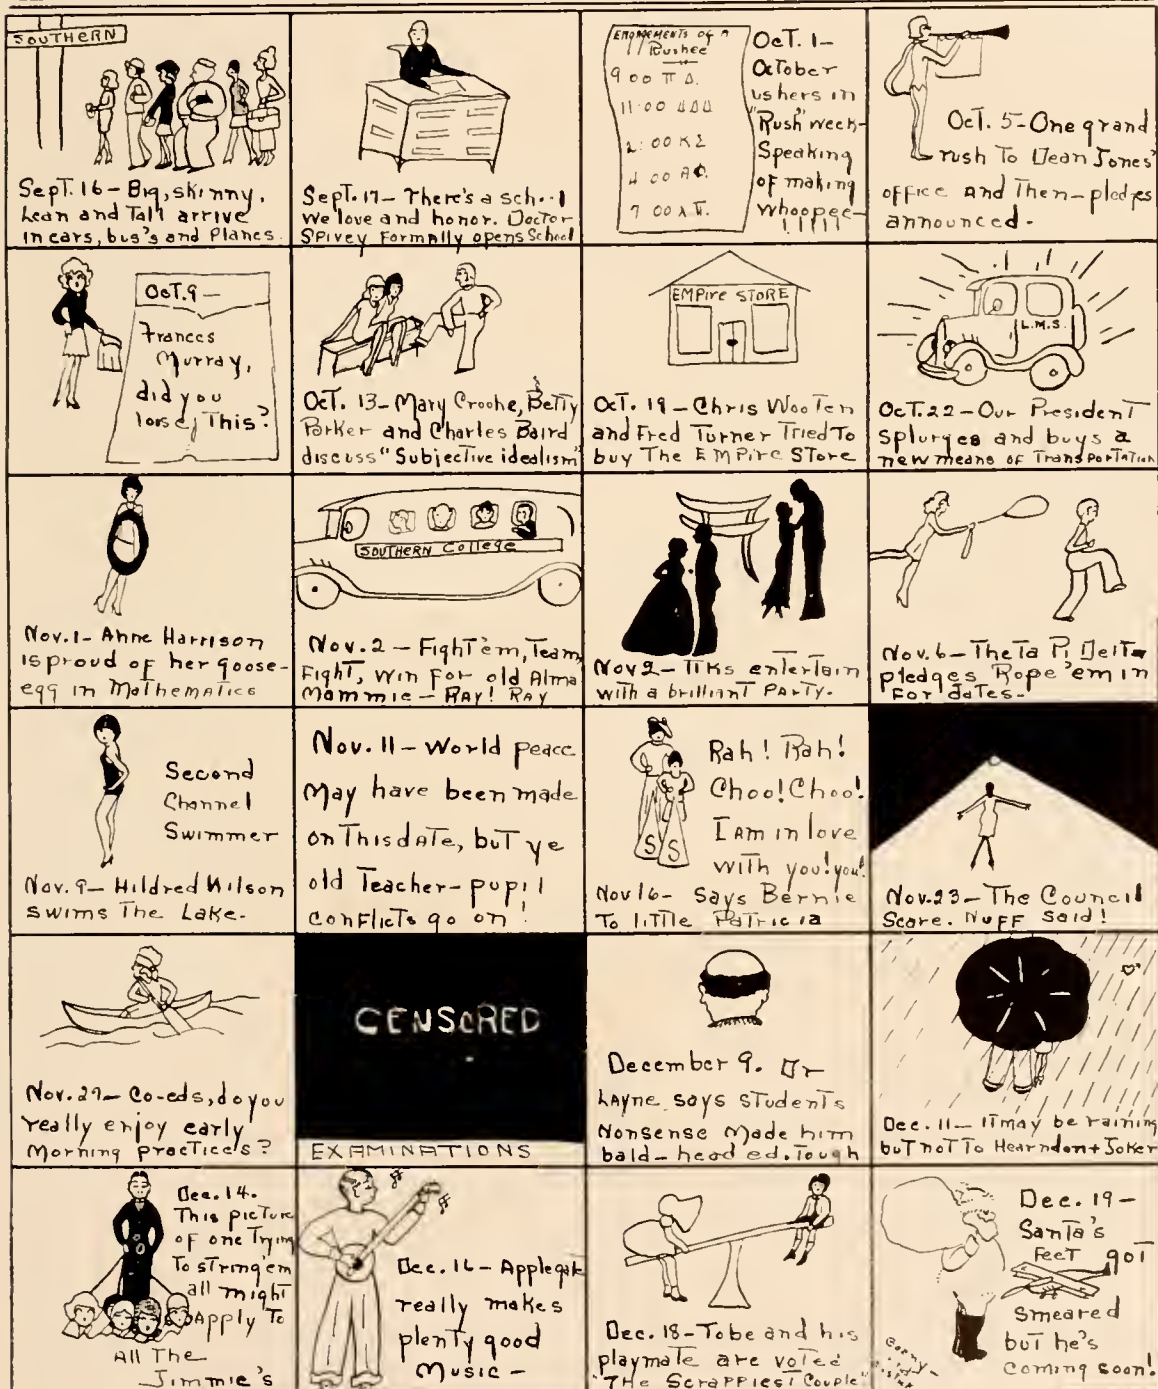 SOUTHERN
Sept. 16 - Big, skinny,
Lean and Tall arrive
in cars, bus's and Planes.
Sept. 17 - There's a sch..l
We love and honor. Doctor
Spivey Formally opens School
ENGAGEMENTS OF A
Rushee
9 00 Π Δ.
11:00 ΔΔΔ
2:00 K Σ
4 00 A Φ.
7 00
Oct. 1-
October
ushers in
"Rush" week-
Speaking
of making
Whoopee-
!!!!!
Oct. 5 - One grand
rush To Dean Jones'
office and Then - pledges
announced.
Oct. 9 -
Frances
Murray,
did you
lose, This?
Oct. 13 - Mary Crooke, Betty
Parker and Charles Baird
discuss "Subjective idealism"
EMPire STORE
Oct. 19 - Chris Wooten
and Fred Turner Tried To
buy The EMPire Store
L.M.S.
Oct. 22 - Our President
Splurges and buys a
new means of Transportation
Nov. 1 - Anne Harrison
is proud of her goose-
egg in Mathematics
SOUTHERN College
Nov. 2 - Fight 'em, Team,
Fight, win For old Alma
Mammie - RAY! RAY
Nov 2 - ΠKs entertain
with a brilliant PARTY.
Nov. 6 - Theta Pi Delta
pledges Rope 'em in
For dates -
Second
Channel
Swimmer
Nov. 9 - Hildred Wilson
swims The Lake.
Nov. 11 - World peace
May have been made
on This date, but ye
old Teacher - pupil
conflicts go on!
Rah! Rah!
Choo! Choo!
I Am in love
with you! you!
S S
Nov 16 - Says Bernie
To little Patricia
Nov. 23 - The Council
Scare. Nuff said!
Nov. 29 - Co-eds, do you
really enjoy early
Morning practice's?
CENSORED
EXAMINATIONS
December 9. Dr
Layne says students
Nonsense Made him
bald-headed. Tough
Dec. 11 - It may be raining
but not to Hearndon + Joker
Dec. 14.
This picture
of one Trying
To string 'em
all might
Apply To
All The
Jimmie's
Dec. 16 - Applegate
really makes
plenty good
Music -
Dec. 18 - Tobe and his
playmate are voted
"The Scrappiest Couple"
Dec. 19 -
Santa's
Feet got
smeared
but he's
coming soon!